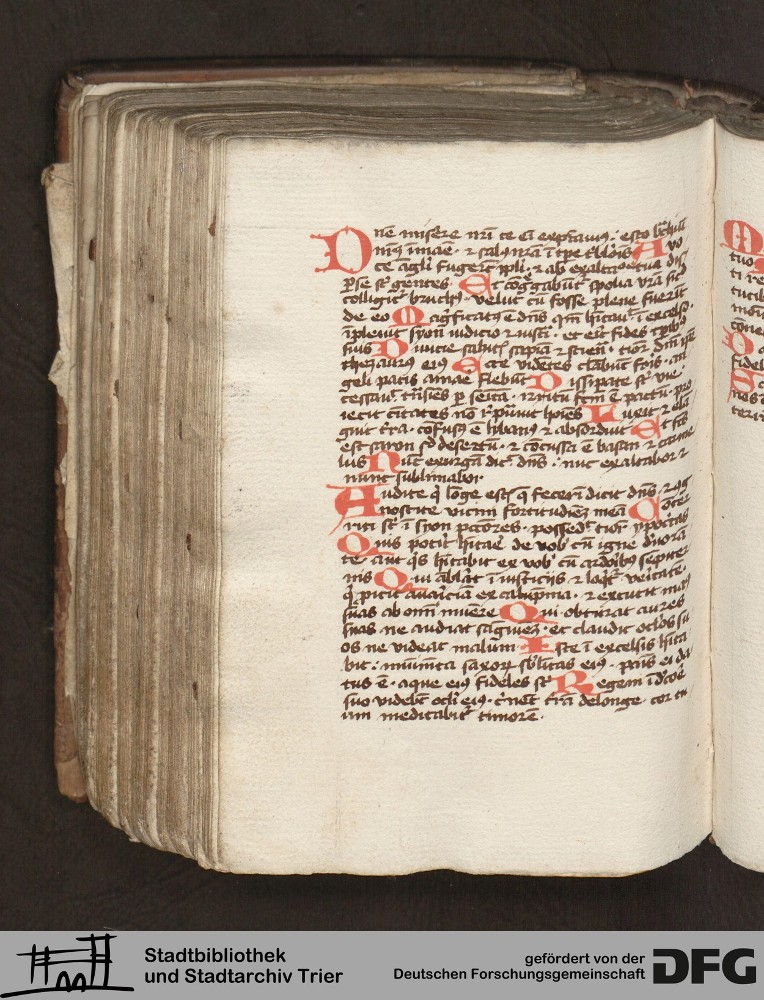 Dne miserere nri te em expectauimus · esto brachiu
nrm i mane · et salus nra i tpe tribulois A vo
ce angeli fugerut ppli · et ab exaltacoe tua dis
perse st gentes · Et cogregabunt spolia vra sicut
colligit bruchus · velut cu fosse plene fuerut
de eo Magnificatus e dns qm habitauit i excelso ·
ipleuit syon iudicio et iusti · et erit fides tpibus
tuis Diuicie salutis sapia et sciencia · timor dni ipse
thezaurus eius Ecce videtes clabunt foris · an
geli pacis amare flebut Dissipate st vie
cessauit transies per semita · irritu fcm e pactu · pro
iecit ciuitates no reputauit hoies Luxit et elan
guit terra · cofusus e libanus et absorduit Et fcs
est saron sicut desertu · et concussa e basan et carme
lus Nuc exurga dicit dns · nuc exaltabor et
nunc sublimabor ·
Audite qui longe estis que fecerim dicit dns · et cog
noscite vicini fortitudinez mea Conter
riti st i syon peccatores · possedit timor ypocritas
Quis poterit habitare de vob cu igne deuora
te · aut quis habitabit ex vob cu ardoribus sempiter
nis Qui ablat i iusticijs et loquitur veritate ·
qui proicit auariciam ex calupnia · et excutit manus
suas ab omni munere Qui obturat aures
suas ne audiat sanguinez · et claudit oclos su
os ne videat malum Iste i excelsis habita
bit · munimeta saxorum sublimitas eius · panis ei da
tus e · aque eius fideles st Regem i decore
suo videbut ocli eius · cernent terra delonge · cor tu
um medicabitur timore ·
Stadtbibliothek
und Stadtarchiv Trier
gefördert von der
Deutschen Forschungsgemeinschaft
DFG